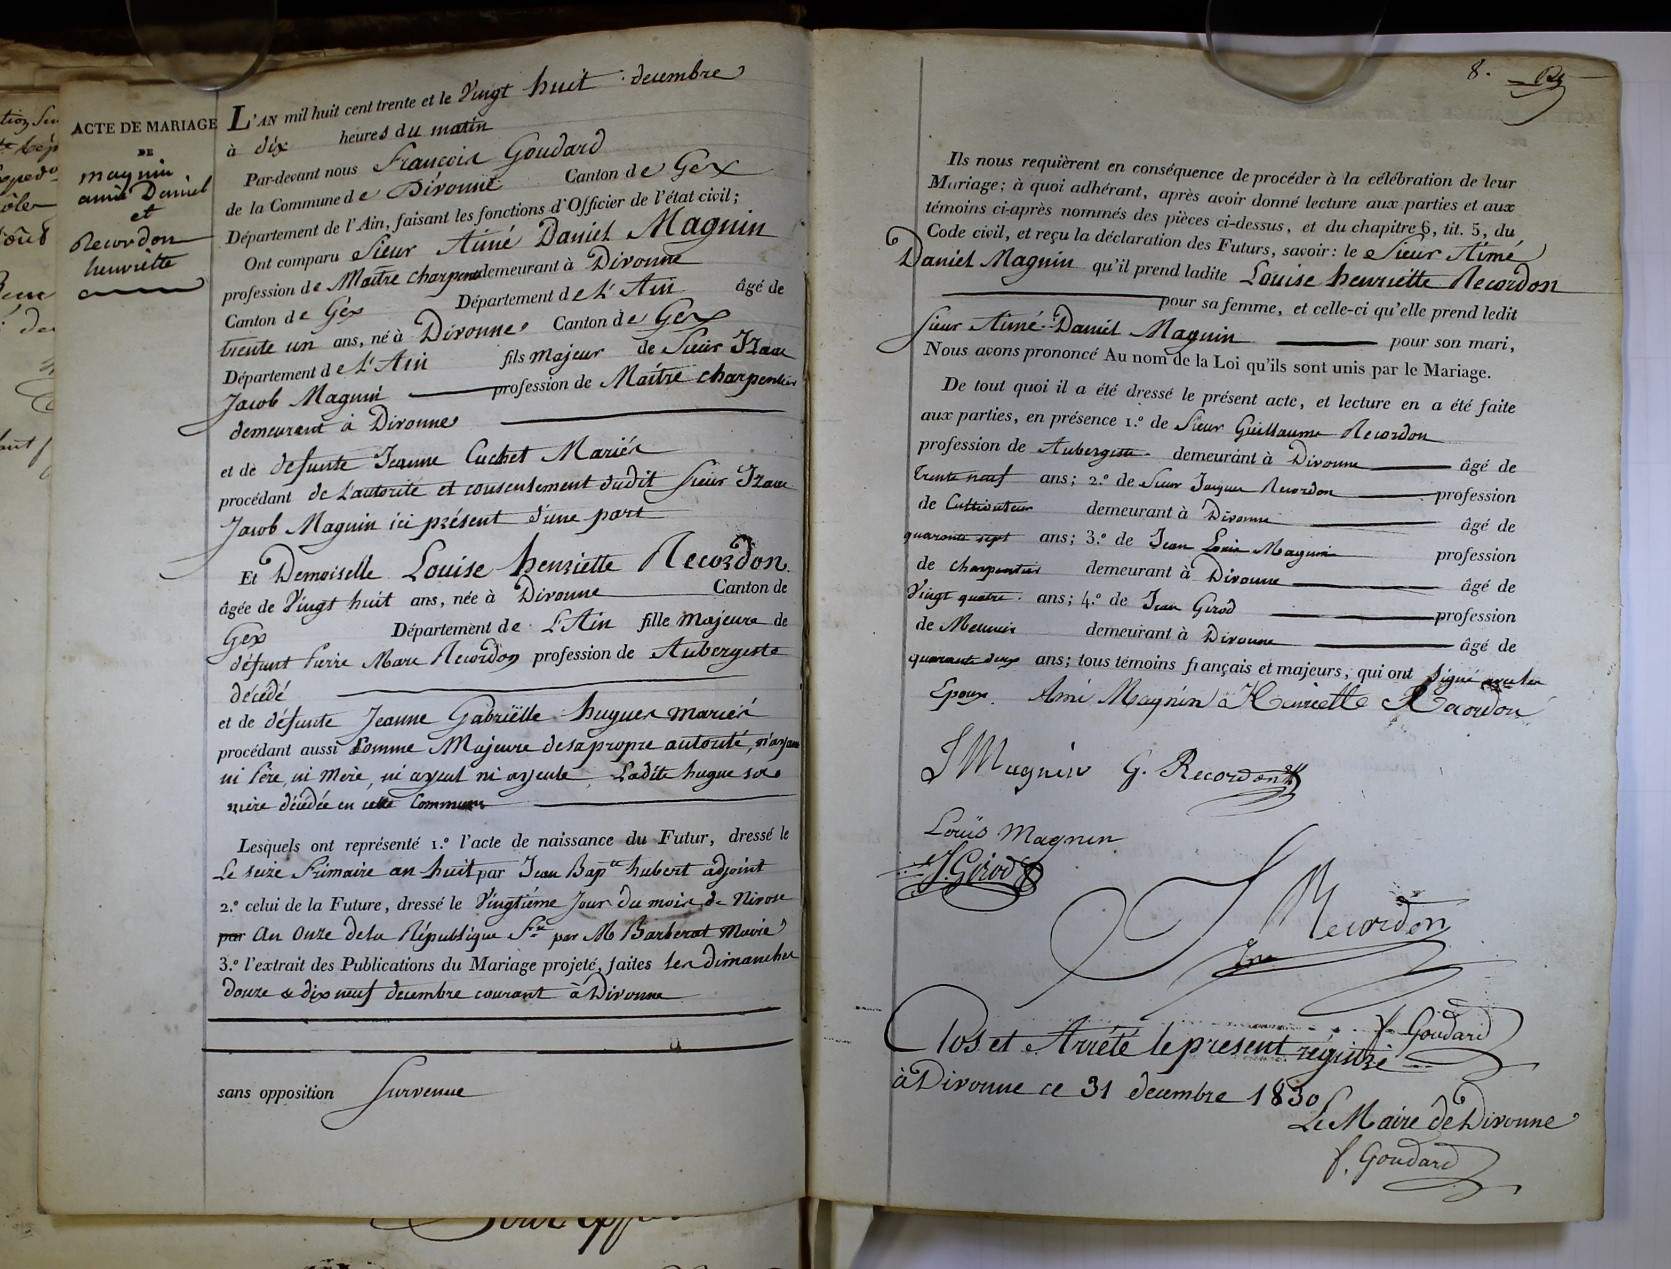 ACTE DE MARIAGE
DE
magnin
aimé Daniel
et
Recordon
henriette
L'AN mil huit cent trente et le Vingt huit decembre
à dix heures du matin
Par-devant nous François Goudard
de la Commune de Divonne Canton de Gex
Département de l'Ain, faisant les fonctions d'Officier de l'état civil;
Ont comparu Sieur Aimé Daniel Magnin
profession de Maitre charpentier demeurant à Divonne
Canton de Gex Département de L'Ain âgé de
trente un ans, né à Divonne Canton de Gex
Département de L'Ain fils majeur de Sieur Izaac
Jacob Magnin profession de Maitre charpentier
demeurant à Divonne
et de defunte Jeanne Cuchet Mariés
procédant de L'autorité et consentement dudit Sieur Izaac
Jacob Magnin ici présent d'une part
Et Demoiselle Louise henriette Recordon
âgée de Vingt huit ans, née à Divonne Canton de
Gex Département de L'Ain fille majeure de
défunt Pierre Marc Recordon profession de Aubergiste
décédé
et de défunte Jeanne Gabriëlle hugues mariés
procédant aussi Comme Majeure de sa propre autorité, n'ayant
ni Père, ni Mère, ni ayeul ni ayeule, Ladite hugue sa
mère décédée en cette Commune
Lesquels ont représenté 1.º l'acte de naissance du Futur, dressé le
Le seize Frimaire an huit par Jean Bap.te hubert adjoint
2.º celui de la Future, dressé le Vingtième Jour du mois de Nivose
par an onze de la République f.se par M Barberat Maire
3.º l'extrait des Publications du Mariage projeté, faites les dimanches
douze & dix neuf decembre courant à Divonne
sans opposition Survenue
8.
Ils nous requièrent en conséquence de procéder à la célébration de leur
Mariage; à quoi adhérant, après avoir donné lecture aux parties et aux
témoins ci-après nommés des pièces ci-dessus, et du chapitre 6, tit. 5, du
Code civil, et reçu la déclaration des Futurs, savoir: le Sieur Aimé
Daniel Magnin qu'il prend ladite Louise henriette Recordon
pour sa femme, et celle-ci qu'elle prend ledit
Sieur Aimé Daniel Magnin pour son mari,
Nous avons prononcé Au nom de la Loi qu'ils sont unis par le Mariage.
De tout quoi il a été dressé le présent acte, et lecture en a été faite
aux parties, en présence 1.º de Sieur Guillaume Recordon
profession de Aubergiste demeurant à Divonne âgé de
Trente neuf ans; 2.º de Sieur Jacques Recordon profession
de Cultivateur demeurant à Divonne âgé de
quarante sept ans; 3.º de Jean Louis Magnin profession
de charpentier demeurant à Divonne âgé de
Vingt quatre ans; 4.º de Jean Girod profession
de Meunier demeurant à Divonne âgé de
quarante deux ans; tous témoins français et majeurs, qui ont signé avec les
Epoux. Ami Magnin Henriette Recordon
J Magnin G. Recordon
Louis Magnin
J. Girod
J Recordon
f. Goudard
Clos et Arrété le present régistre
à Divonne ce 31 decembre 1830
Le Maire de Divonne
f. Goudard